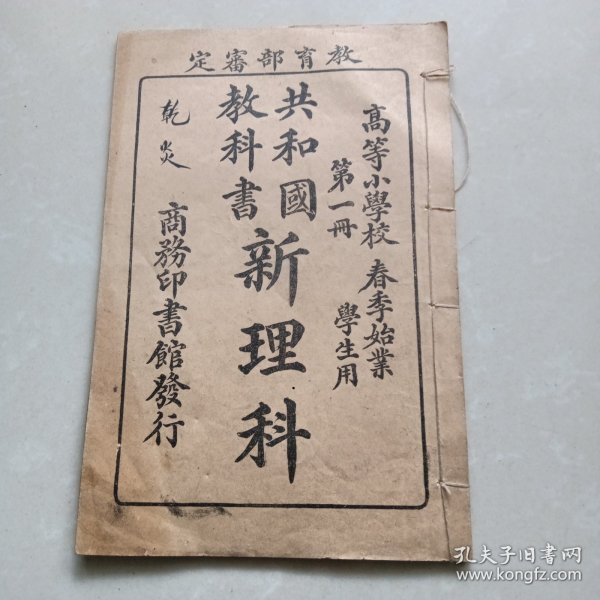 教育部審定
高等小學校 春季始業
第一冊 學生用
共和國
教科書
新理科
乾炎
商務印書館發行
孔夫子旧书网
www.kongfz.com